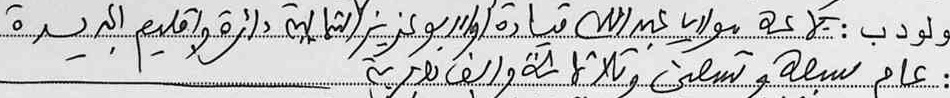 ولود ب: جماعة مولاي عبد الله قيادة أولاد بوعزيز الشمالية دائرة وإقليم الجديدة
عام سبعة وتسعين وثلاثمائة وألف هجرية